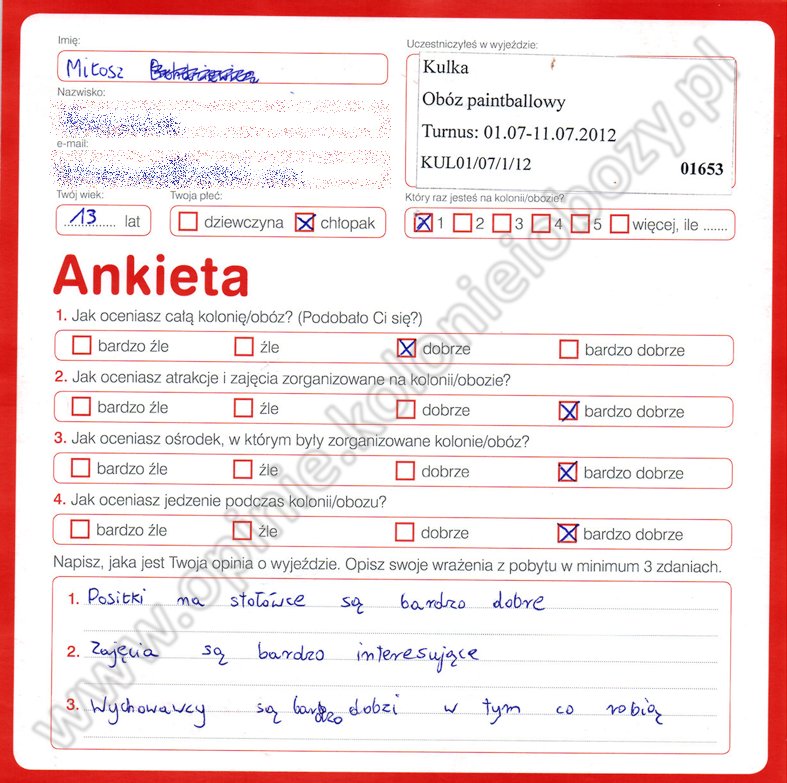 Imię:
Miłosz
Nazwisko:
e-mail:
Twój wiek:
13 lat
Twoja płeć:
dziewczyna chłopak
Uczestniczyłeś w wyjeździe:
Kulka
Obóz paintballowy
Turnus: 01.07-11.07.2012
KUL01/07/1/12 01653
Który raz jesteś na kolonii/obozie?
1 2 3 4 5 więcej, ile .......
Ankieta
1. Jak oceniasz całą kolonię/obóz? (Podobało Ci się?)
bardzo źle źle dobrze bardzo dobrze
2. Jak oceniasz atrakcje i zajęcia zorganizowane na kolonii/obozie?
bardzo źle źle dobrze bardzo dobrze
3. Jak oceniasz ośrodek, w którym były zorganizowane kolonie/obóz?
bardzo źle źle dobrze bardzo dobrze
4. Jak oceniasz jedzenie podczas kolonii/obozu?
bardzo źle źle dobrze bardzo dobrze
Napisz, jaka jest Twoja opinia o wyjeździe. Opisz swoje wrażenia z pobytu w minimum 3 zdaniach.
1. Posiłki na stołówce są bardzo dobre
2. Zajęcia są bardzo interesujące
3. Wychowawcy są bardzo dobzi w tym co robią
www.opinie.kolonieiobozy.pl